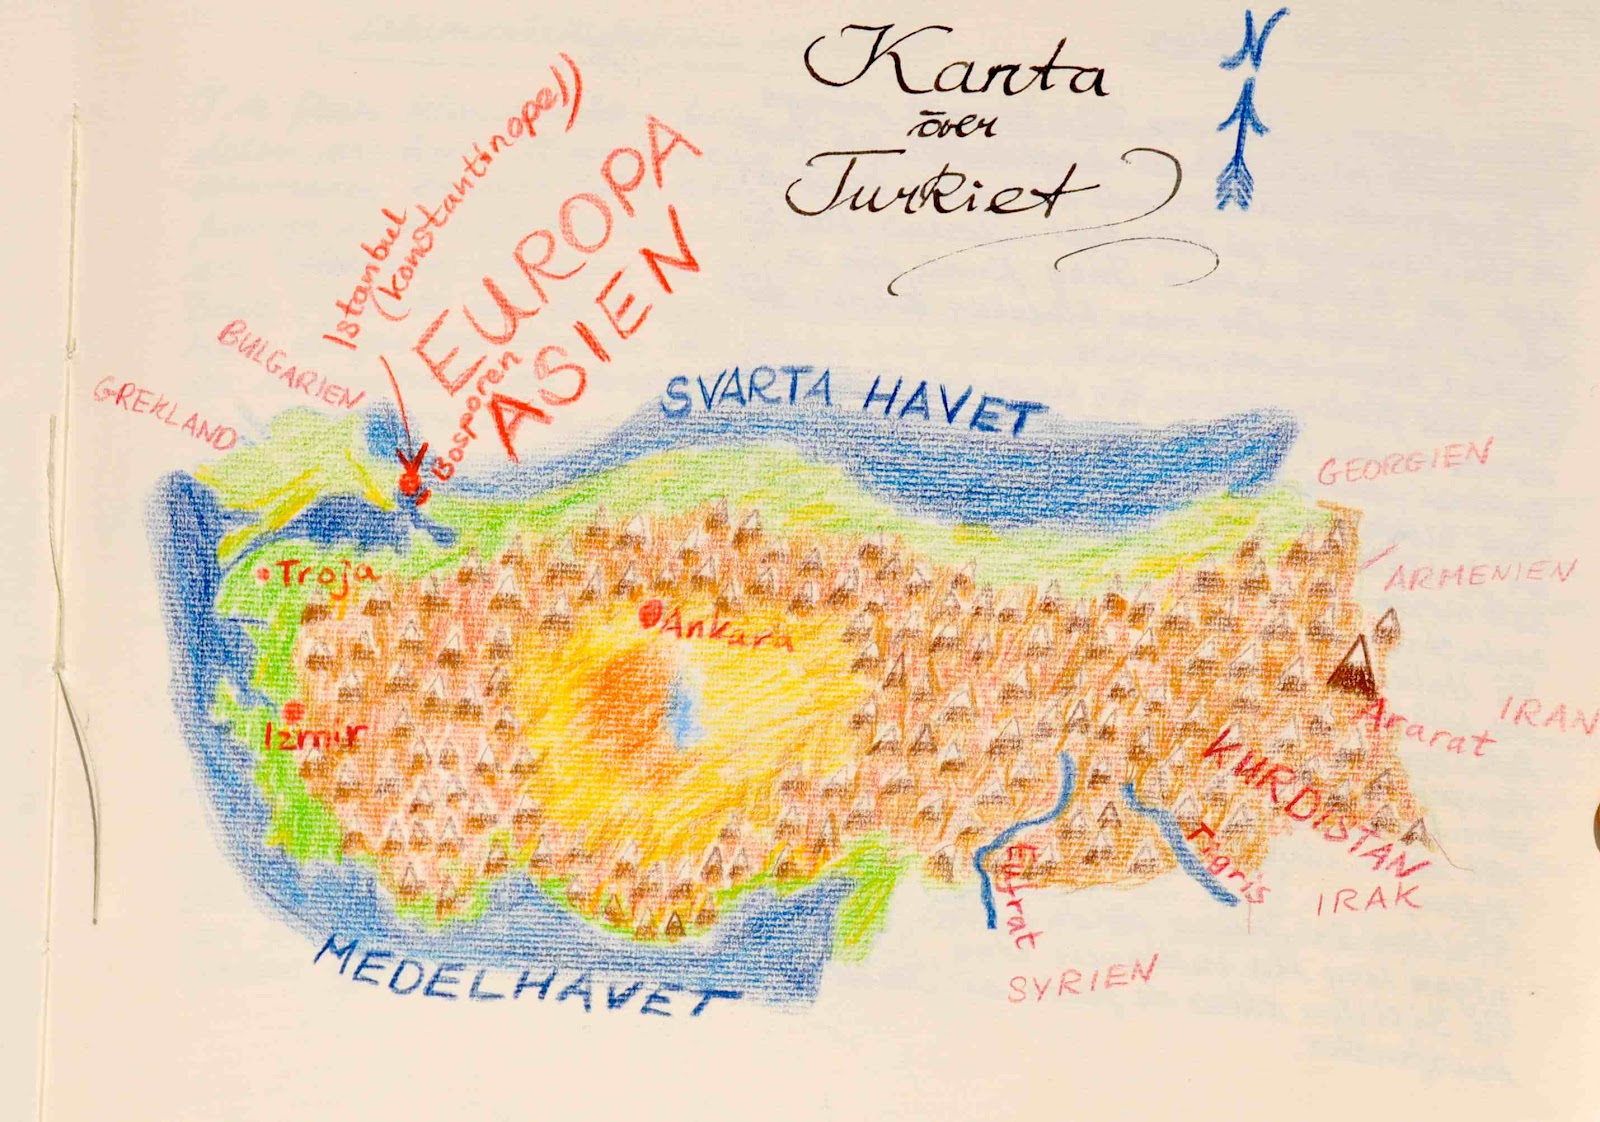 Karta
över
Turkiet
N
Istanbul
(konstantinopel))
EUROPA
ASIEN
Bosporen
BULGARIEN
GREKLAND
SVARTA HAVET
GEORGIEN
ARMENIEN
Troja
Ankara
Izmir
Ararat
IRAN
KURDISTAN
Tigris
Eufrat
IRAK
SYRIEN
MEDELHAVET